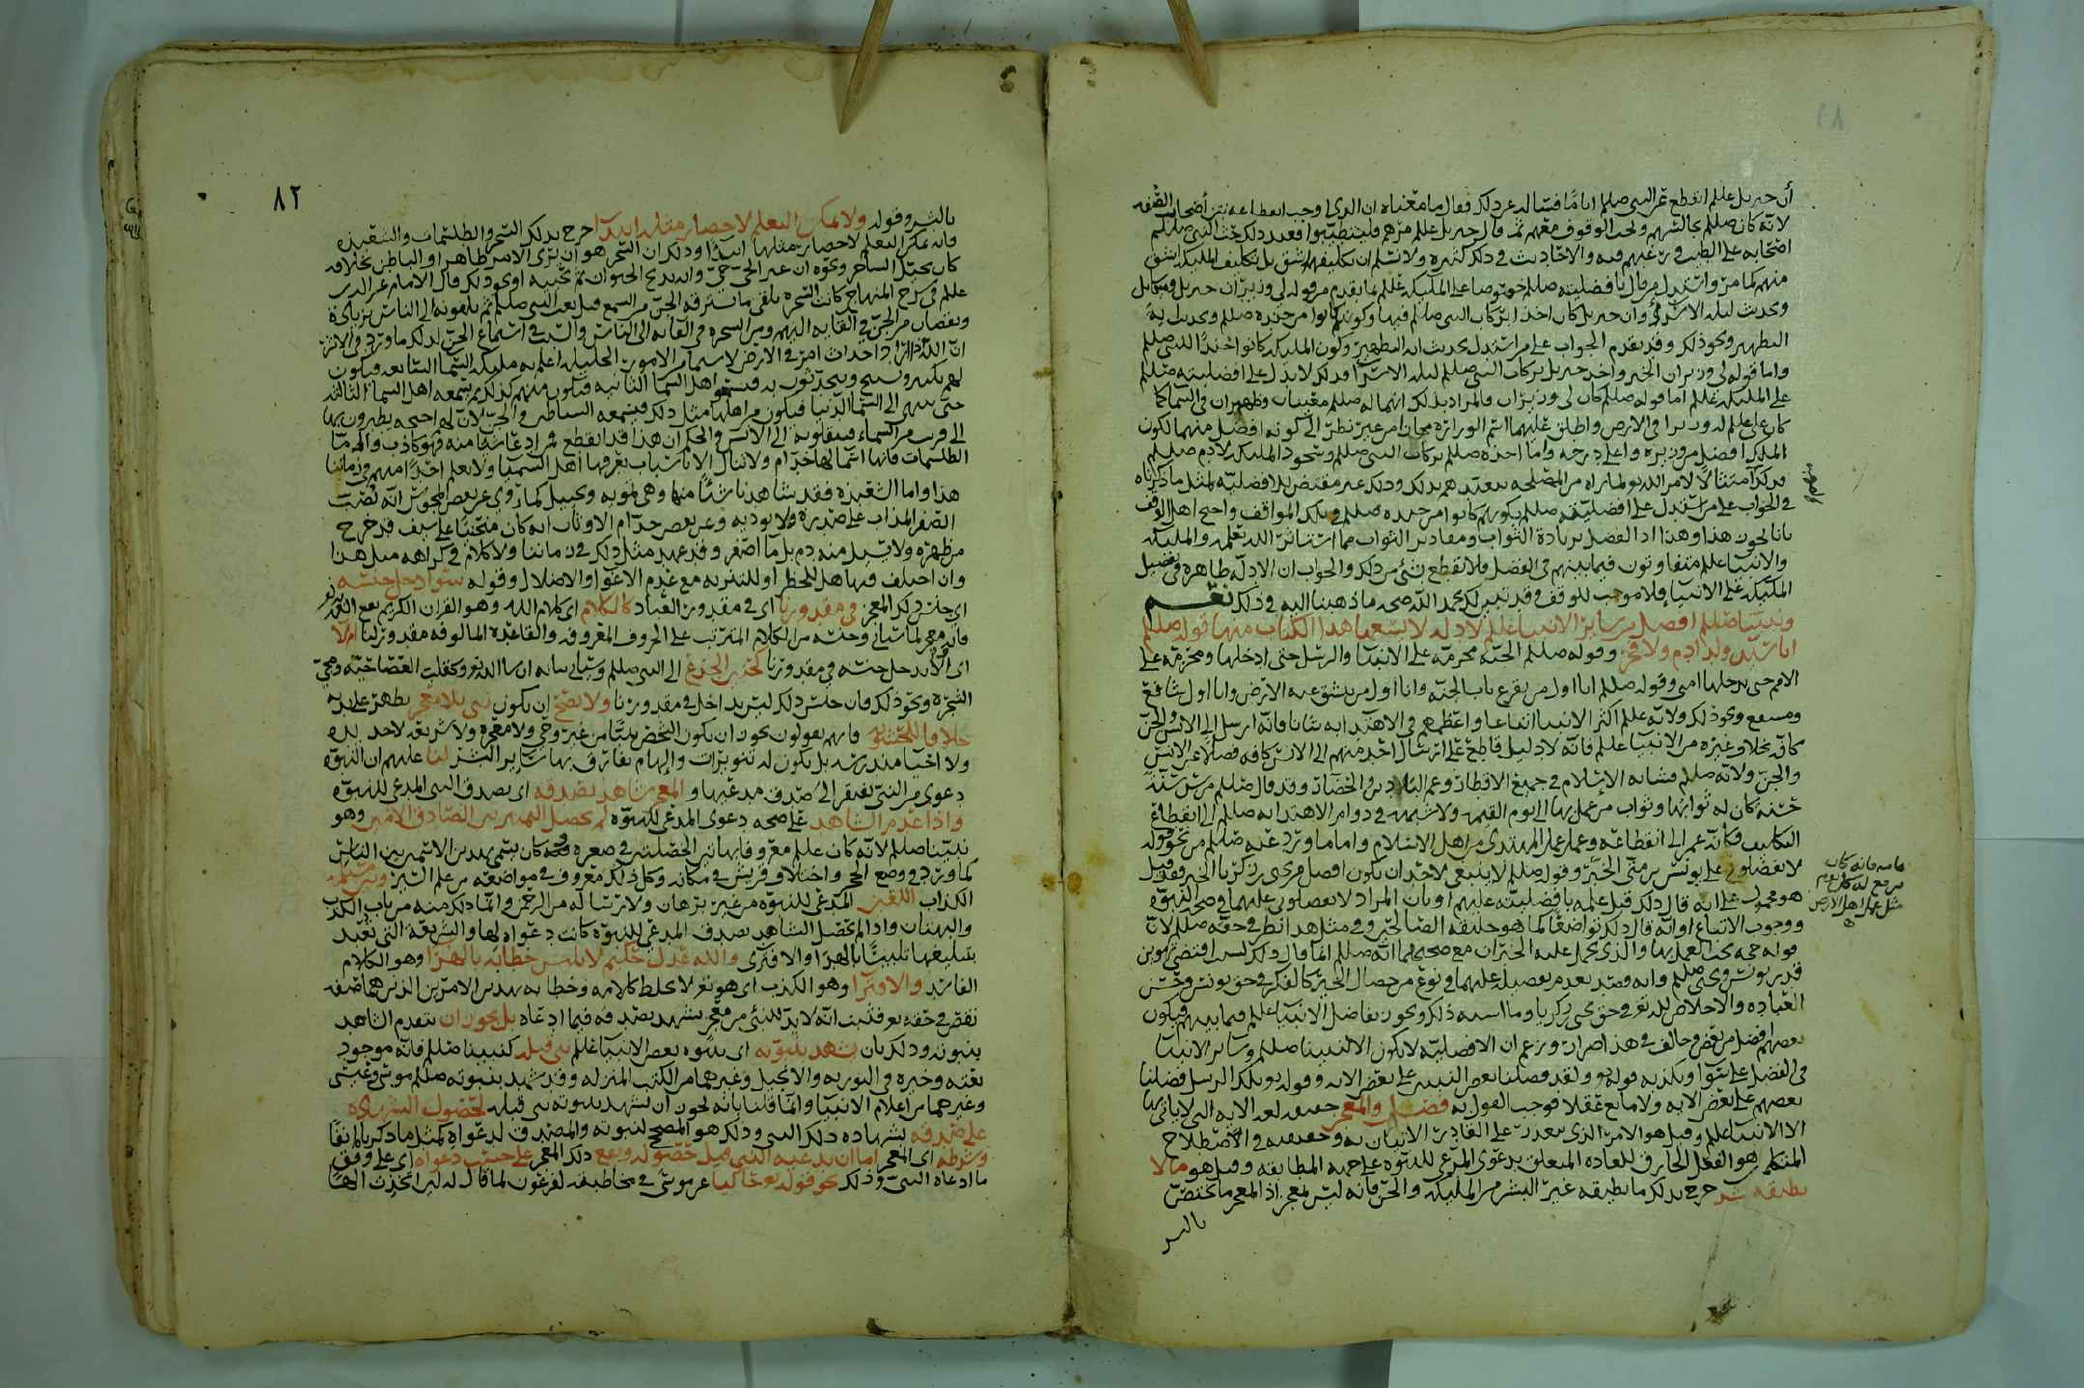 أن جبريل علم انقطع عن النبي صللم اياما فسأله عن ذلك فقال ما معناه ان الذي اوجب انقطاعه نتن أصحاب الصفه
لانه كان صللم يجالسهم ولحب الوقوف معهم ثم قال جبريل علم مرهم فليتطيبوا فعند ذلك حث النبي صللم
اصحابه على الطيب ورغبهم فيه والاحاديث في ذلك كثيره ولا نسلم ان تكليفهم اشق بل تكليف المليكه اشق
منهم كما مر واستدل من قال بافضليته صللم خصوصا على المليكه عللم بما يقدم من قوله لي وزيران جبريل وميكايل
وحديث ليله الاسرى وأن جبريل كان اخذ بركاب النبي صللم فيها وكونهم كانوا من جنده صللم وبحديث ايه
التطهير ونحو ذلك وقد تقدم الجواب على من استدل بحديث ايه التطهير وكون المليكه كانوا جندا للنبي صللم
واما قوله لي وزيران الخبر واخذ جبريل بركاب النبي صللم ليله الاسرا فذلك لا يدل على افضليته صللم
على المليكه عللم اما قوله صللم كان لي وزيران والمراد بذلك انهما له صللم معينان وظهيران في السما كما
كان علي علم له وزيرا في الارض واطلق عليهما اسم الوزاره مجازا من غير نظر الى كونه افضل منهما لكون
الملك افضل من وزيره واعلى درجه واما اخذه صللم بركاب النبي صللم وسجود المليكه لادم صللم
فذلك امتثالا لامر الله تع لما يراه من المصلحه بتعبدهم بذلك وذلك غير مقتض للافضليه لمثل ما ذكرناه
في الجواب على من استدل على افضليته صللم بكونهم كانوا من جنده صللم في تلك المواقف واحتج اهل الوقف
بانا نجوز هذا وهذا اذ الفضل بزيادة الثواب ومقادير الثواب مما استاثر الله بعلمه والمليكه
والانبيا عللم متفاوتون فيما بينهم في الفضل فلا نقطع بشي من ذلك والجواب ان الادله ظاهره في تفضيل
المليكه على الانبيا فلا موجب للوقف وقد تبين لك بحمد الله صحه ما ذهبنا اليه في ذلك نعم
ونبينا صللم افضل من سائر الانبيا عللم لادله لا تسعها هذا الكتاب منها قوله صللم
انا سيد ولد ادم ولا فخر وقوله صللم الجنه محرمه على الانبيا والرسل حتى ادخلها ومحرمه على
الامم حتى تدخلها امتي وقوله صللم انا اول من يقرع باب الجنه وانا اول من تنشق عنه الارض وانا اول شافع
ومشفع ونحو ذلك ولانه علم اكثر الانبيا اتباعا واعظمهم في الاهتدا به شانا فانه ارسل الى الانس والجن
كافه بخلاف غيره من الانبيا عللم فانه لا دليل قاطع على ارسال احد منهم الى الانس كافه فضلا عن الانس
والجن ولانه صللم فشا به الاسلام في جميع الاقطار وعم البلاد من الحضار وقد قال صللم من سن سنة
حسنة كان له ثوابها وثواب من عمل بها الى يوم القيمه ولا شبهه في دوام الاهتدا به صللم الى انقطاع
التكليف فكانه عمر الى انقطاعه وعمل عمل المهتدي من اهل الاسلام واما ما ورد عنه صللم من نحو قوله
لا تفضلوني على يونس بن متى الخبر وقوله صللم لا ينبغي لاحد ان يكون افضل من يحيى بن زكريا الخبر فقد قيل
هو محمول على انه قال ذلك قبل علمه بافضليته عليهم او بان المراد لا تفضلوني عليهما في صحه النبوة
ووجوب الاتباع او انه قال ذلك تواضعا كما هو خليقه الصالحين وفي مثل هذا نظر في حقه صللم لان
قوله حجه يجب العمل بها والذي يحمل عليه الخبران مع صحتهما انه صللم انما قال ذلك
قدر يونس ويحيى صللم
العباده والاخلاص لله تع في حق يحيى بن زكريا وما اشبه ذلك ويجوز تفاضل الانبيا عللم فيما بينهم فيكون
بعضهم افضل من بعض وخالف في هذا ضرار وزعم ان الافضليه لا تكون الا لنبينا صللم وسائر الانبيا
في الفضل على سوا ويكذبه قوله تع ولقد فضلنا بعض النبيين على بعض الايه وقوله تع تلك الرسل فضلنا
بعضهم على بعض الايه ولا مانع عقلا فوجب القول به فصل والمعجز حقيقه لغه الايه التي لا ياتي بها
الا الانبيا عللم وقيل هو الامر الذي يتعذر على القادر الاتيان به وحقيقته في الاصطلاح
المتكلمين هو الفعل الخارق للعاده المتعلق بدعوى المدعي للنبوه على جهه المطابقه وقيل هو مالا
يطيقه بشر خرج بذلك ما يطيقه غير البشر من المليكه والجن فانه ليس بمعجز اذ المعجز ما يختص
بالبشر
عامه فانه كان
يرجع له كل يوم
مثل عمل اهل الارض
٨١
٨٢
بالبشر وقوله ولا يمكن التعلم لاحضار مثله ابتدآ خرج بذلك السحر والطلسمات والشعبذه
فانه يمكن التعلم لاحضار مثلها ابتدآ وذلك ان السحر هو ان يرى الامر ظاهرا والباطن بخلافه
كان يخيل الساحر ونحوه ان غير الحي حي وانه يذبح الحيوان ثم يحييه او نحو ذلك قال الامام عز الدين
علم في شرح المنهاج كانت السحره يلقى ما تسترقه الجن من السمع قبل بعث النبي صللم ثم يلقونه الى الناس بزيادة
ونقصان من الجن في القايه اليهم ومن السحره في القايه الى الناس والسبب في استماع الجن لذلك ما ورد في الاثر
ان الله اذا اراد احداث امر في الارض لا سيما من الامور الجليله اعلم به مليكه السما السابعه فيكون
لهم تكبير وتسبيح ويتحدثون به فيستمع اهل السما الثانيه فيكون منهم كذلك ثم يسمعه اهل السما الثالثه
حتى ينتهي الى السما الدنيا فيكون من اهلها مثل ذلك فيسمعه الشياطين والجن لان لهم اجنحه يطيرون بها
الى قرب من السماء فينقلونه الى الانس والحكم ان هذا قد انقطع فمن ادعا شيا منه فهو كاذب واما
الطلسمات فانها اسما لها خدام ولا تنال الا باسباب يعرفها اهل السيميا ولا نعلم احدا منهم في زماننا
هذا واما الشعبذه فقد شاهدنا شيئا منها وهي تمويه وتخييل كما روي عن بعض المجوس انه يصب
الصفر المذاب على صدره ولا يوذيه وعن بعض خدام الاوثان انه كان منحنيا على سيف قد خرج
من ظهره ولا يسيل منه دم بل ما اصفر وقد عهد مثل ذلك في زماننا ولا كلام في كراهه مثل هذا
وان اختلف فيها هل للحظر او للتنزيه مع عدم الاغوا والاضلال وقوله سوآ دخل جنسه
اي جنس ذلك المعجز في مقدورنا اي في مقدور العباد كالكلام اي كلام الله وهو القران الكريم
فانه معجز لما سياتي وجنسه من الكلام المترتب على الحروف المعروفه والقاعده المالوفه مقدور لنا ام لا
اي ام لم يدخل جنسه في مقدورنا كحنين الجذع الى النبي صللم وسياتي بيانه ان شا الله تع وكقلب العصا حيه ومجي
الشجره ونحو ذلك فان جنس ذلك ليس بداخل في مقدورنا ولا يصح ان يكون نبي بلا معجز يظهر على يده
خلافا للحشويه فانهم يقولون يجوز ان يكون الشخص نبيا من غير وحي ولا معجزه ولا شريعه لاحد يده
ولا احيا مندرسه بل يكون له تنويرات والهام يفارق بها سائر البشر لنا عليهم ان النبوه
دعوى من النبي تفتقر الى صدق مدعيها و المعجز شاهد بصدقه اي بصدق النبي المدعي للنبوه
واذا عدم الشاهد على صحه دعوى المدعي للنبوه لم يحصل التمييز بين الصادق الامين وهو
نبينا صللم لانه كان علم معروفا بهاتين الخصلتين في صغره وقد كان يسمى بهذين الاسمين بين الناس
كما ورد في وضع الحجر واختلاف قريش في مكانه وكل ذلك معروف في مواضعه من علم السير وبين مسيلمه
الكذاب اللعين المدعي للنبوه من غير برهان ولا ارسال له من الرحمن وانما ذلك منه من باب الكذب
والبهتان واذا لم يحصل الشاهد بصدق المدعي للنبوه كانت دعواه لها والشريعه التي يريد
تبليغها تلبيسا بالهذآ والافترى والله عدل حكيم لا يلبس خطابه بالهذآ وهو الكلام
الفاسد والافترآ وهو الكذب اي هو تع لا يخلط كلامه وخطابه بهذين الامرين الذين هما صفه
نقص في حقه تع فثبت انه لا بد للنبي من معجز يشهد بصدقه فيما ادعاه بل يجوز ان يتقدم الشاهد
بنبوته وذلك بان يشهد بنبوته اي بنبوه بعض الانبيا عللم نبي قبله كنبينا صللم فانه موجود
نعته وخبره في التوريه والانجيل وغيرهما من الكتب المنزله وقد شهد بنبوته صللم موسى وعيسى
وغيرهما من اعلام الانبيا وانما قلنا بانه يجوز ان يشهد بنبوته نبي قبله لحصول الشهاده
على صدقه بشهاده ذلك النبي وذلك هو المصحح لنبوته والمصدق لدعواه كمثل ما ذكرناه انفا
وشرطه اي المعجز اما ان يدعيه النبي قبل حصوله ويقع ذلك المعجز على حسب دعواه اي على وفق
ما ادعاه النبي وذلك نحو قوله تع حاكيا عن موسى في مخاطبته لفرعون لما قال له لئن اتخذت الها